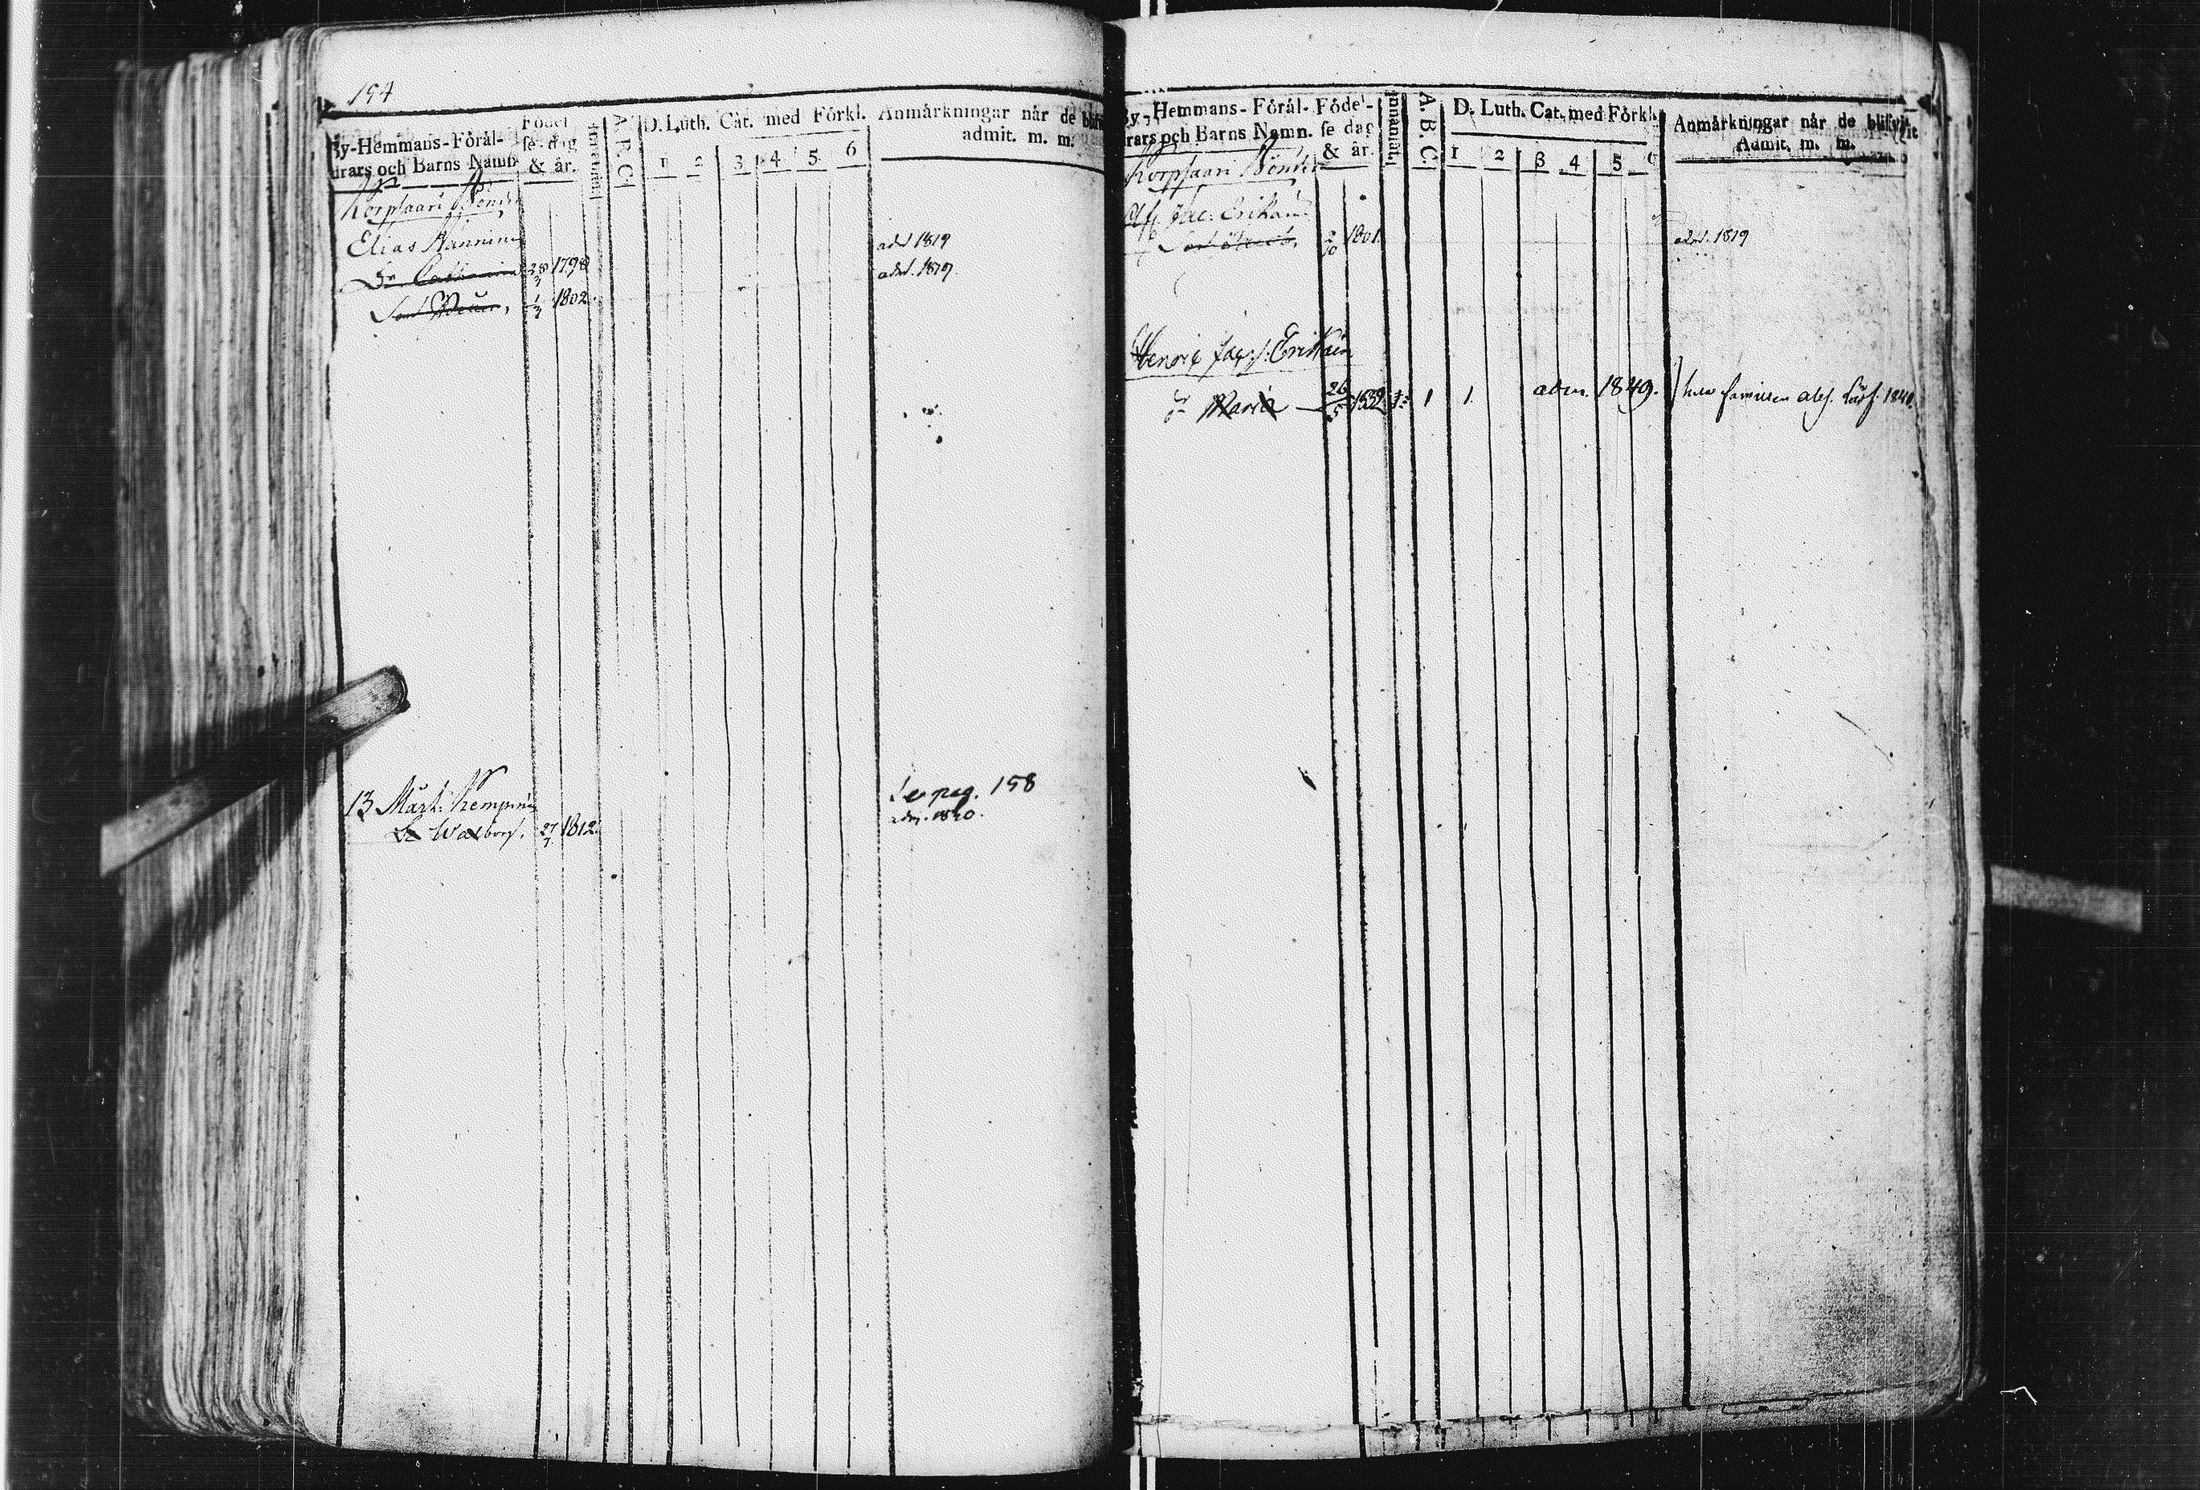 194
By-Hemmans-Förål-
drars och Barns Namn
Födel
se dag
& år.
A. B. C.
D. Luth. Cat. med Förkl.
1 2 3 4 5 6
Anmärkningar når de blifvit
admit. m. m.
Korpsaari
Elias Manninen
Dr Catharina 28/3 1798 adm 1819
1/3 1802 adm. 1819.
13 Mårt. Kempinen Se pag. 158
Dr Walborg. 27/7 1812. adm. 1840.
By-Hemmans-Förål-
drars och Barns Namn.
Födel-
se dag
& år.
Innanläs.
A. B. C.
D. Luth. Cat. med Förkl.
1 2 3 4 5 6
Anmärkningar når de blifvit
Admit. m. m.
Korpsaari
Jac. Erikain
2/10 1801. adm. 1819
Henric Jac.s. Erikain
dr Maria 26/5 1832 1 1 adm. 1849. familien 1840.